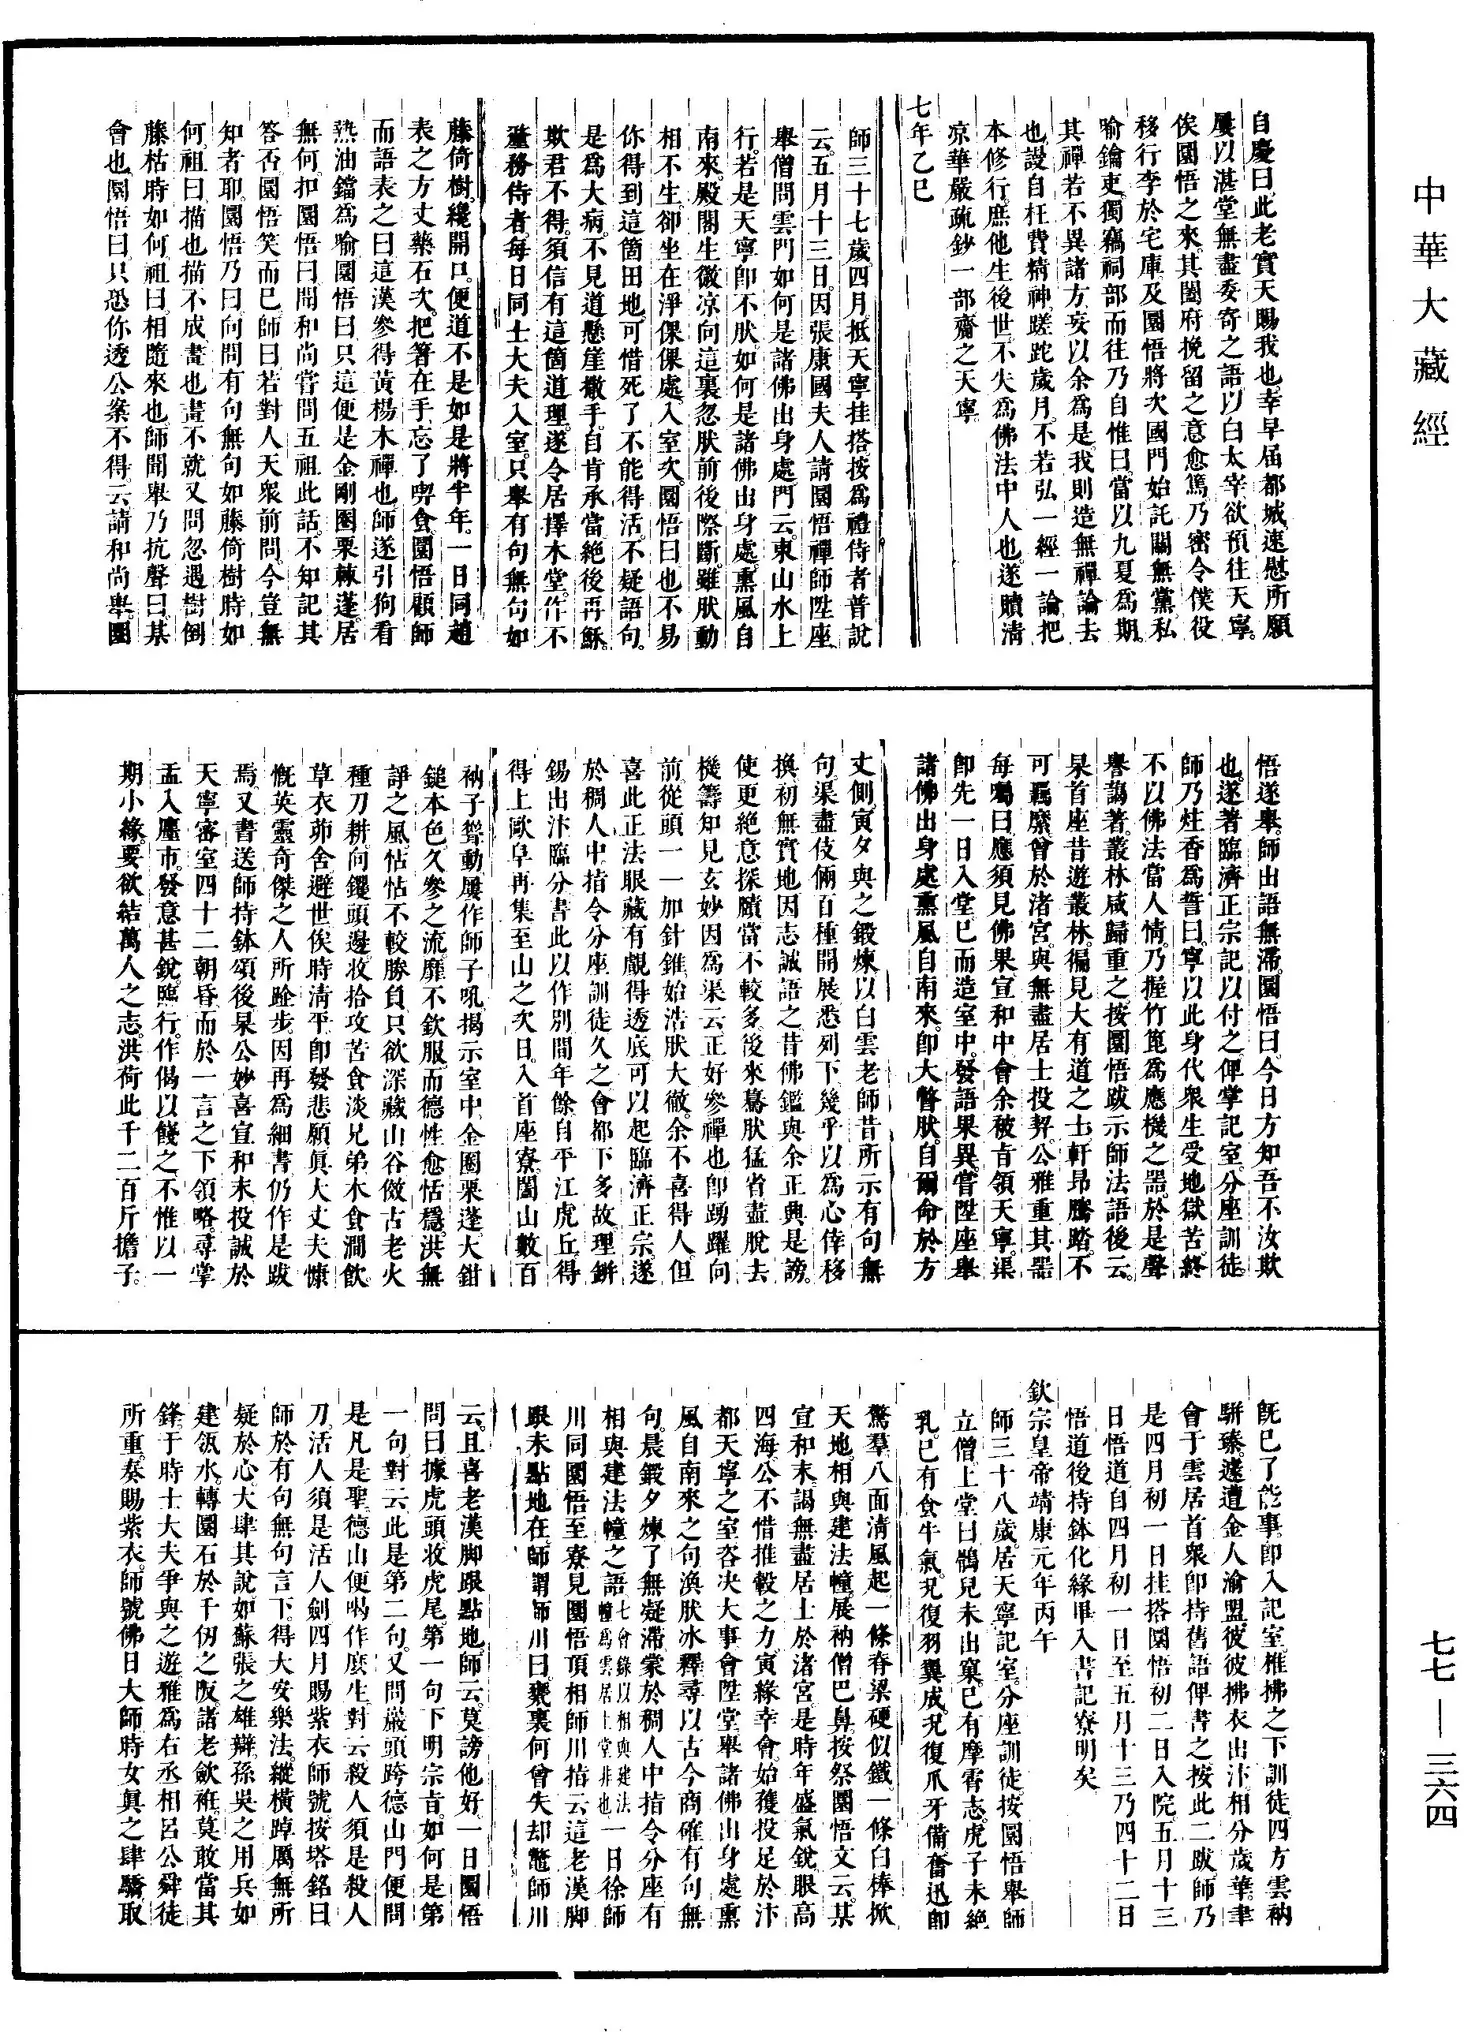 中華大藏經
自慶曰此老實天賜我也幸早屆都城速慰所願
屢以湛堂無盡委寄之語以白太宰欲預往天寧
俟園悟之來其閽府挽留之意愈篤乃密令僕役
移行李於宅庫及園悟將次國門始託關無黨私
喻鑰吏獨竊祠部而往乃自惟曰當以九夏為期
其禪若不異諸方妄以余為是我則造無禪論去
也設自枉費精神蹉跎歲月不若弘一經一論把
本修行庶他生後世不失為佛法中人也遂贖清
凉華嚴疏鈔一部齋之天寧
七年乙巳
師三十七歲四月抵天寧挂搭按為禮侍者普說
云五月十三日因張康國夫人請園悟禪師陞座
舉僧問雲門如何是諸佛出身處門云東山水上
行若是天寧卽不肰如何是諸佛出身處熏風自
南來殿閣生微凉向這裏忽肰前後際斷雖肰動
相不生卻坐在淨倮倮處入室次園悟曰也不易
你得到這箇田地可惜死了不能得活不疑語句
是為大病不見道懸崖撒手自肯承當絕後再穌
欺君不得須信有這箇道理遂令居擇木堂作不
釐務侍者每日同士大夫入室只舉有句無句如
藤倚樹纔開口便道不是如是將半年一日同趙
表之方丈藥石次把箸在手忘了喫食園悟顧師
而語表之曰這漢參得黃楊木禪也師遂引狗看
熱油鐺為喻園悟曰只這便是金剛圈栗棘蓬居
無何扣園悟曰聞和尚嘗問五祖此話不知記其
答否園悟笑而已師曰若對人天衆前問今豈無
知者耶園悟乃曰向問有句無句如藤倚樹時如
何祖曰描也描不成畫也畫不就又問忽遇樹倒
藤枯時如何祖曰相隨來也師聞舉乃抗聲曰某
會也園悟曰只恐你透公案不得云請和尚舉園
悟遂舉師出語無滯園悟曰今日方知吾不汝欺
也遂著臨濟正宗記以付之俾掌記室分座訓徒
師乃炷香為誓曰寧以此身代衆生受地獄苦終
不以佛法當人情乃握竹篦為應機之器於是聲
譽藹著叢林咸歸重之按園悟跋示師法語後云
杲首座昔遊叢林徧見大有道之士軒昂騰踏不
可羈縻曾於渚宮與無盡居士投契公雅重其器
每囑曰應須見佛果宣和中會余被旨領天寧渠
卽先一日入堂已而造室中發語果異嘗陞座舉
諸佛出身處熏風自南來卽大瞥肰自爾命於方
丈側寅夕與之鍛煉以白雲老師昔所示有句無
句渠盡伎倆百種開展悉列下幾乎以為心倖移
換初無實地因志誠語之昔佛鑑與余正與是謗
使更絕意探賾當不較多後來驀肰猛省盡脫去
機籌知見玄妙因為渠云正好參禪也卽踴躍向
前從頭一一加針錐始浩肰大徹余不喜得人但
喜此正法眼藏有覰得透底可以起臨濟正宗遂
於稠人中指令分座訓徒久之會都下多故理鉼
錫出汴臨分書此以作別間年餘自平江虎丘得
得上歐阜再集至山之次日入首座寮闔山數百
衲子聳動屢作師子吼揭示室中金圈栗蓬大鉗
鎚本色久參之流靡不欽服而德性愈恬穩洪無
諍之風怗怗不較勝負只欲深藏山谷傚古老火
種刀耕向钁頭邊收拾攻苦食淡兄弟木食澗飲
草衣茆舍避世俟時清平卽發悲願眞大丈夫慷
慨英靈奇傑之人所跧步因再為細書仍作是跋
焉又書送師持鉢頌後杲公妙喜宣和末投誠於
天寧審室四十二朝昏而於一言之下領略尋掌
盂入廛市發意甚銳臨行作偈以餞之不惟以一
期小緣要欲結萬人之志洪荷此千二百斤擔子
旣已了能事卽入記室椎拂之下訓徒四方雲衲
騈臻遽遭金人渝盟彼彼拂衣出汴相分歲華聿
會于雲居首衆卽持舊語俾書之按此二跋師乃
是四月初一日挂搭園悟初二日入院五月十三
日悟道自四月初一日至五月十三乃四十二日
悟道後持鉢化緣畢入書記寮明矣
欽宗皇帝靖康元年丙午
師三十八歲居天寧記室分座訓徒按園悟舉師
立僧上堂曰鶻兒未出窠已有摩霄志虎子未絕
乳已有食牛氣況復羽翼成況復爪牙備奮迅卽
驚羣八面清風起一條脊梁硬似鐵一條白棒掀
天地相與建法幢展衲僧巴鼻按祭園悟文云某
宣和末謁無盡居士於渚宮是時年盛氣銳眼高
四海公不惜推轂之力寅緣幸會始獲投足於汴
都天寧之室咨决大事會陞堂舉諸佛出身處熏
風自南來之句渙肰冰釋尋以古今商確有句無
句晨鍛夕煉了無凝滯棠於稠人中指令分座有
相與建法幢之語七會錄以相與建法幢為雲居上堂非也一日徐師
川同園悟至寮見園悟頂相師川指云這老漢脚
跟未點地在師謂師川曰甕裏何曾失却鼈師川
云且喜老漢脚跟點地師云莫謗他好一日園悟
問曰據虎頭收虎尾第一句下明宗旨如何是第
一句對云此是第二句又問巖頭跨德山門便問
是凡是聖德山便喝作麽生對云殺人須是殺人
刀活人須是活人劍四月賜紫衣師號按塔銘曰
師於有句無句言下得大安樂法縱橫踔厲無所
疑於心大肆其說如蘇張之雄辯孫吳之用兵如
建瓴水轉園石於千仞之阪諸老歛衽莫敢當其
鋒于時士大夫爭與之遊雅為右丞相呂公舜徒
所重奏賜紫衣師號佛日大師時女眞之肆驕取
七七—三六四